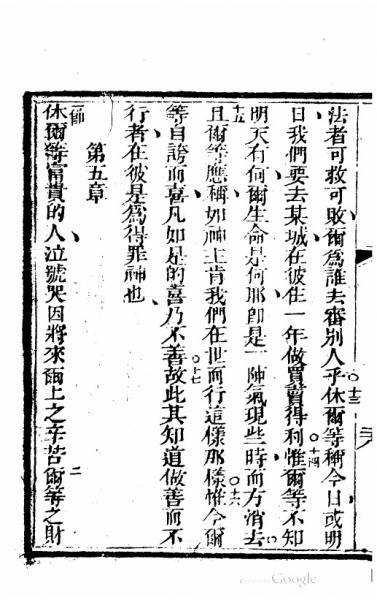 法者可救可敗爾為誰去審別人乎休爾等稱今日或明
十三
日我們要去某城在彼住一年做買賣得利惟爾等不知
十四
明天有何爾生命是何耶即是一陣氣現些時而方消去
十五
且爾等應稱如神主肯我們在世而行這樣那樣惟今爾
十六
等自誇而喜凡如是的喜乃不善故此其知道做善而不
十七
行者在彼是為得罪神也
第五章
一節
休爾等富貴的人泣號哭因將來爾上之辛苦爾等之財
二
Google